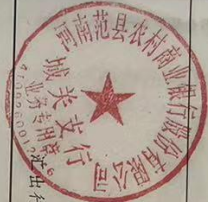 河南范县农村商业银行股份有限公司
城关支行
业务专用章